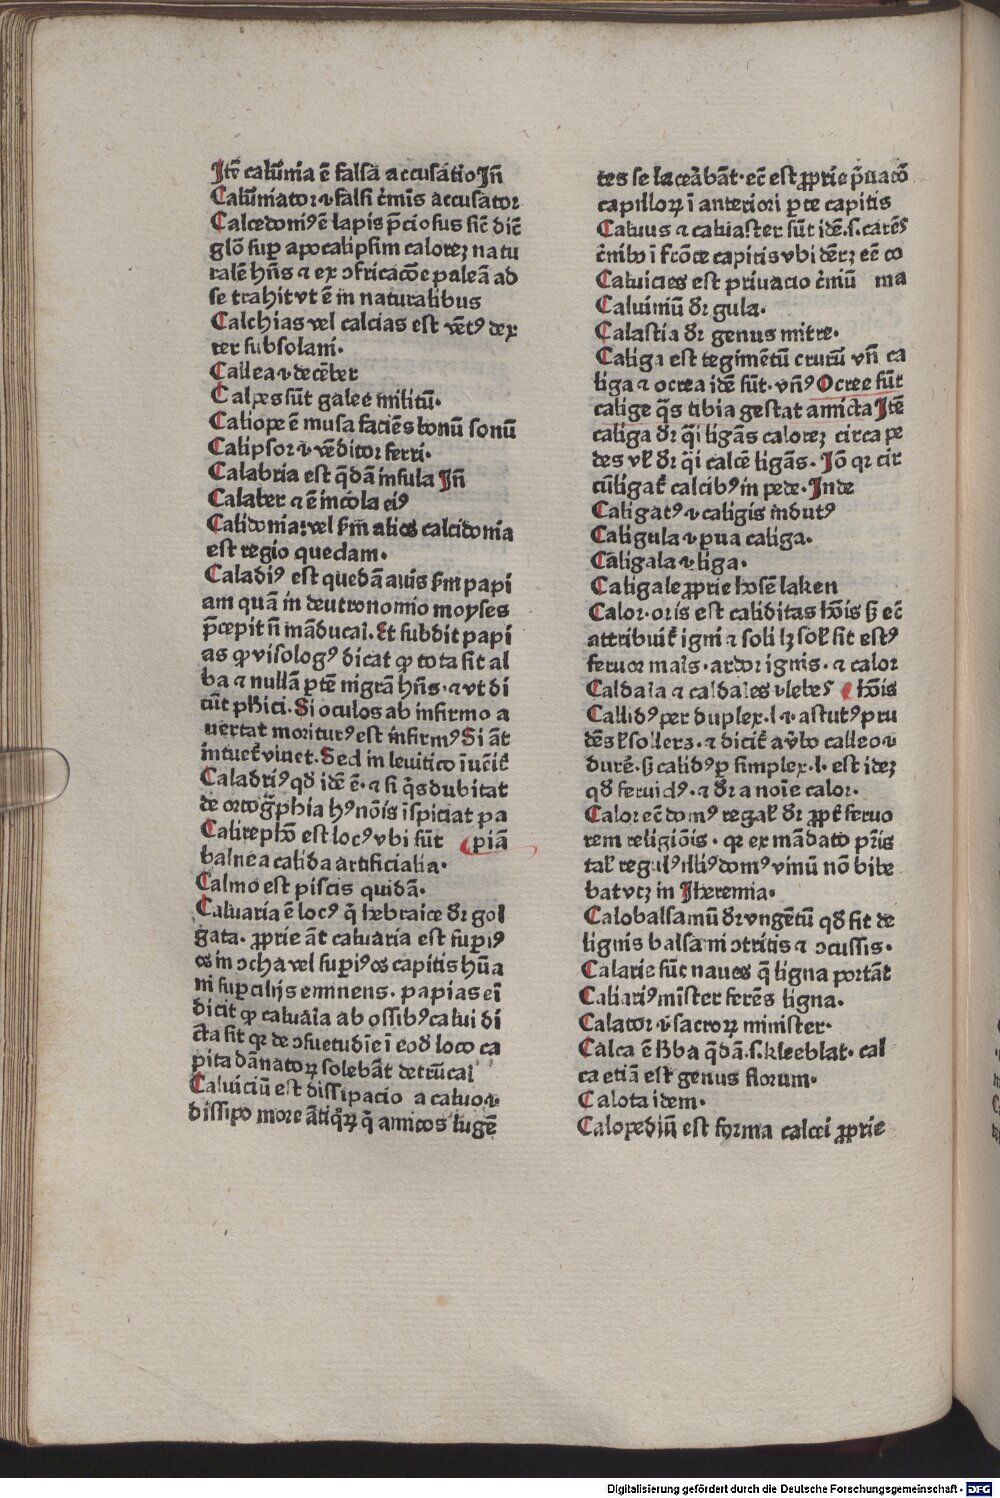 Itē calūnia ē falsa accusatio Iñ
Calūniator .i. falsi c̄mīs accusator
Calcedoniꝰ ē lapis p̄ciosus sic̄ dic̄
glo᷒ sup apocalipsim calorez natu
ralē hn̄s ⁊ ex ↄfricacōe paleā ad
se trahit vt ē in naturalibus
Calchias vel calcias est vētꝰ dex
ter subsolani.
Callea .i. decēber
Calpes sūt galee militū.
Caliope ē musa faciēs bonū sonū
Calipsor .i. vēditor ferri.
Calabria est q̄dā insula Iñ
Calaber ⁊ ē incola eiꝰ
Calidonia: vel sm̄ alios calcidonia
est regio quedam.
Caladiꝰ est quedā auis sm̄ papi
am quā in deutronomio moyses
p̄cepit n̄ māducai. Et subdit papi
as ꝙ visologꝰ dicat ꝙ tota sit al
ba ⁊ nullā ꝑtē nigrā hn̄s. ⁊ vt di
cūt phīci. Si oculos ab infirmo a
uertat moriturꝰ est infirmꝰ Si āt
intuet᷑ viuet. Sed in leuitico īuēit᷑
Caladriꝰ qd̄ idē ē. ⁊ si q̄s dubitat
de ortog̃phia hꝰ nōīs īspiciat pa
Calirephō est locꝰ vbi sūt ⸿ piā
balnea calida artificialia.
Calmo est piscis quidā.
Caluaria ē locꝰ q̄ hebraice dr̄ gol
gata. ꝓprie āt caluaria est supiꝰ
os in ↄcha vel supiꝰ os capitis hūa
ni supcilijs eminens. papias ei
dicit ꝙ caluaīa ab ossibꝰ calui di
cta sit qr de ↄsuetudīe ī eod̄ loco ca
pita dānatoꝝ solebāt detrūcai
Caluiciū est dissipacio a caluo .i.
dissipo more ātiq̄ꝝ q̄ amicos lugē
tes se laceābāt. ec̄ est ꝓprie p̄uacō
capilloꝝ ī anteriori ꝑte capitis
Caluus ⁊ caluaster sūt idē. s. carēs
c̄nibꝰ ī frōte capitis vbi dērꝫ eē co
Caluicies est priuacio c̄niū ma
Caluiniū dr̄ gula.
Calastia dr̄ genus mitre.
Caliga est tegimētū crurū vn̄ ca
liga ⁊ ocrea idē sūt. vn̄ꝰ Ocree sūt
calige q̄s tibia gestat amicta Itē
caliga dr̄ q̄i ligās calorez circa pe
des vl᷑ dr̄ q̄i calcē ligās. Iō qr cir
cūligat᷑ calcibꝰ in pede. Inde
Caligatꝰ .i. caligis indutꝰ
Caligula .i. pua caliga.
Caligala .i. liga.
Caligale ꝓprie hosē laken
Calor. oris est caliditas hōis sꝫ ec̄
attribuit᷑ igni ⁊ soli lꝫ sol᷑ sit estꝰ
feruor maīs. ardor ignis. ⁊ calor
Caldaīa ⁊ caldales .i. lebes ⸿ hōis
Callidꝰ per duplex .l. .i. astutꝰ pru
dēs ⁊ sollerꝫ. ⁊ dicit᷑ a v̄bo calleo .i.
durē. sꝫ calidꝰ ꝑ simplex .l. est idez
qd̄ feruidꝰ. ⁊ dr̄ a noīe calor.
Calor ec̄ domꝰ regal᷑ dr̄ ꝓpt᷑ feruo
rem religiōis. qr ex mādato pr̄is
tal᷑ regul᷑ꝰ illiꝰ domꝰ vinū nō bibe
bat vtꝫ in Iheremia.
Calobalsamū dr̄ vngētū qd̄ fit de
lignis balsami ↄtritis ⁊ ↄcussis.
Calarie sūt naues q̄ ligna portāt
Caliariꝰ mīster ferēs ligna.
Calator .i. sacroꝝ minister.
Calca ē hʳba q̄dā. s. kleeblat. cal
ca etiā est genus florum.
Calota idem.
Calopediū est forma calcei ꝓprie
Digitalisierung gefördert durch die Deutsche Forschungsgemeinschaft - DFG